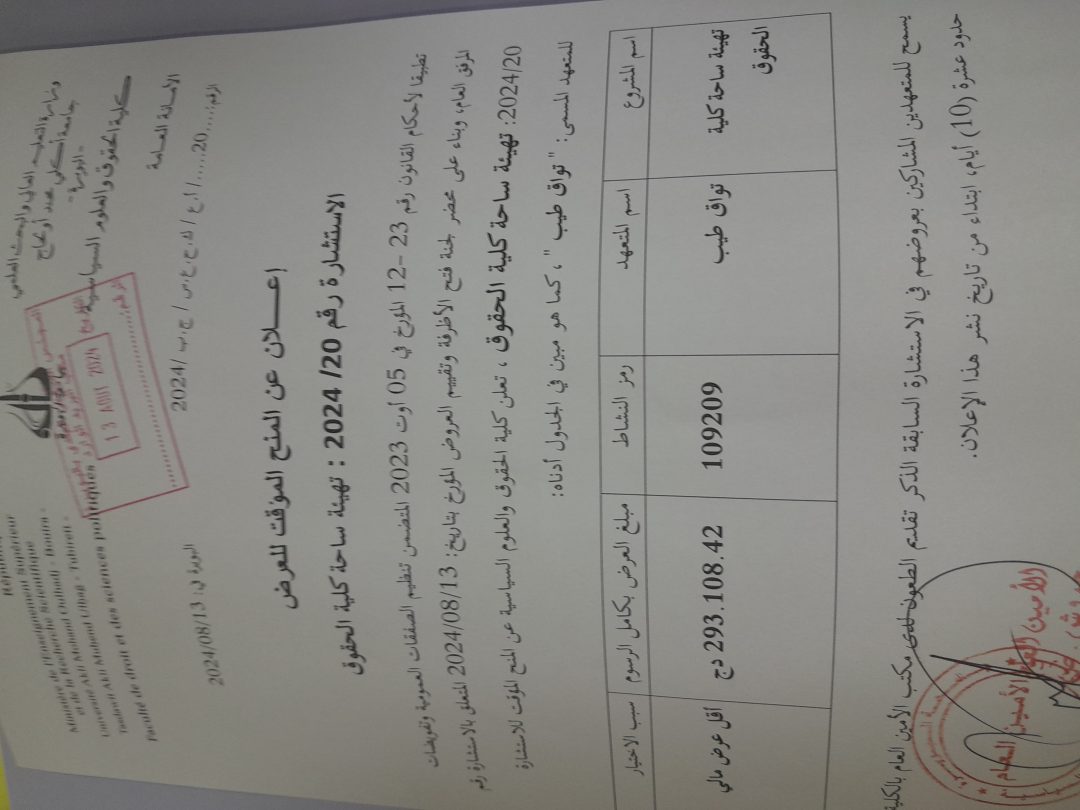 Ministère de l'Enseignement Supérieur
et de la Recherche Scientifique
Université Akli Mohand Oulhadj - Bouira -
Tasdawit Akli Muḥend Ulḥağ - Tubirett -
Faculté de droit et des sciences politiques
وزارة التعليم العالي والبحث العلمي
جامعة أكلي محند أولحاج
- البويرة -
كلية الحقوق والعلوم السياسية
الأمانة العامة
الرقم:.....20...../ا.ع/ك.ح.ع.س/ج.ب/2024
البويرة في: 2024/08/13
13 AOUT 2024
إعـــلان عن المنح المؤقت للعرض
الاستشارة رقم 20/ 2024 : تهيئة ساحة كلية الحقوق
تطبيقا لأحكام القانون رقم 23 -12 المؤرخ في 05 اوت 2023 المتضمن تنظيم الصفقات العمومية وتفويضات
المرفق العام، وبناء على محضر لجنة فتح الأظرفة وتقييم العروض المؤرخ بتاريخ: 2024/08/13 المتعلق بالاستشارة رقم
2024/20: تهيئة ساحة كلية الحقوق ، تعلن كلية الحقوق والعلوم السياسية عن المنح المؤقت للاستشارة
للمتعهد المسمى: " تواق طيب " ، كما هو مبين في الجدول أدناه:
اسم المشروع اسم المتعهد رمز النشاط مبلغ العرض بكامل الرسوم سبب الاختيار
تهيئة ساحة كلية الحقوق تواق طيب 109209 293.108.42 دج أقل عرض مالي
يسمح للمتعهدين المشاركين بعروضهم في الاستشارة السابقة الذكر تقديم الطعون لدى مكتب الأمين العام بالكلية
حدود عشرة (10) أيام، ابتداء من تاريخ نشر هذا الإعلان.
الأمين العام
الأمين العام